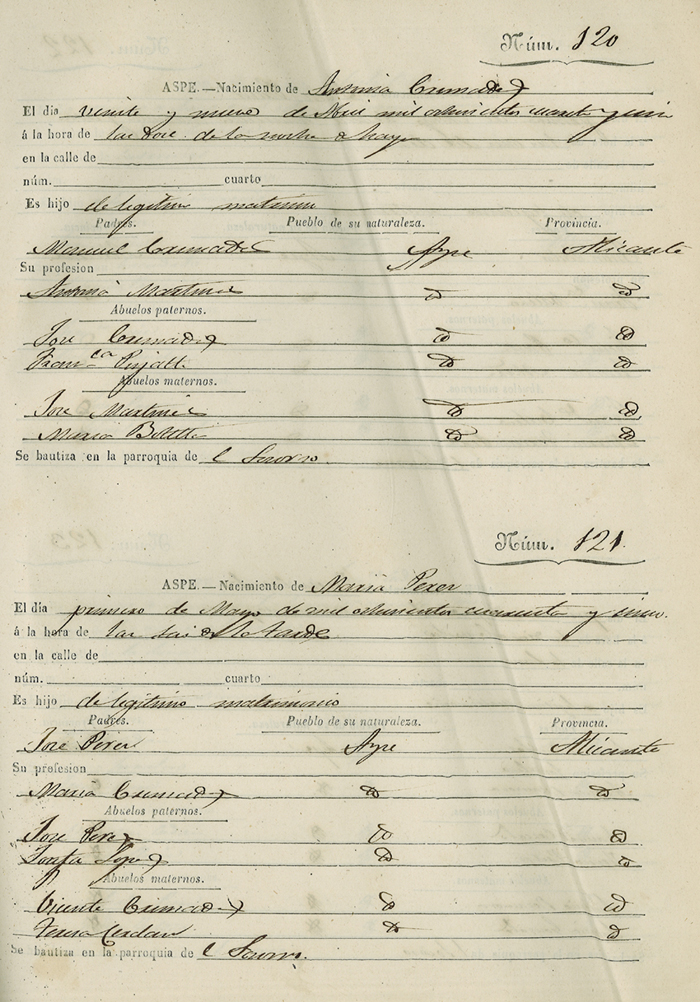 Núm. 120
ASPE.—Nacimiento de Antonia Cremades
El dia veinte y nueve de Abril mil ochocientos cuarenta y cinco
á la hora de las doce de la noche
en la calle de
núm. cuarto
Es hijo de legitimo matrimo
Padres. Pueblo de su naturaleza. Provincia.
Manuel Cremades Aspe Alicante
Su profesion
Antonia Martinez id id
Abuelos paternos.
Jose Cremades id id
Franca id id
Abuelos maternos.
Jose Martinez id id
Maria Botella id id
Se bautiza en la parroquia de el Socorro
Núm. 121
ASPE.—Nacimiento de Maria Perez
El dia primero de Mayo de mil ochocientos cuarenta y cinco.
á la hora de las seis de la tarde
en la calle de
núm. cuarto
Es hijo de legitimo matrimonio
Padres. Pueblo de su naturaleza. Provincia.
Jose Perez Aspe Alicante
Su profesion
Maria Cremades id id
Abuelos paternos.
Jose Perez id id
Josefa Lopez id id
Abuelos maternos.
Vicente Cremades id id
Teresa Cerdan id id
Se bautiza en la parroquia de el Socorro.